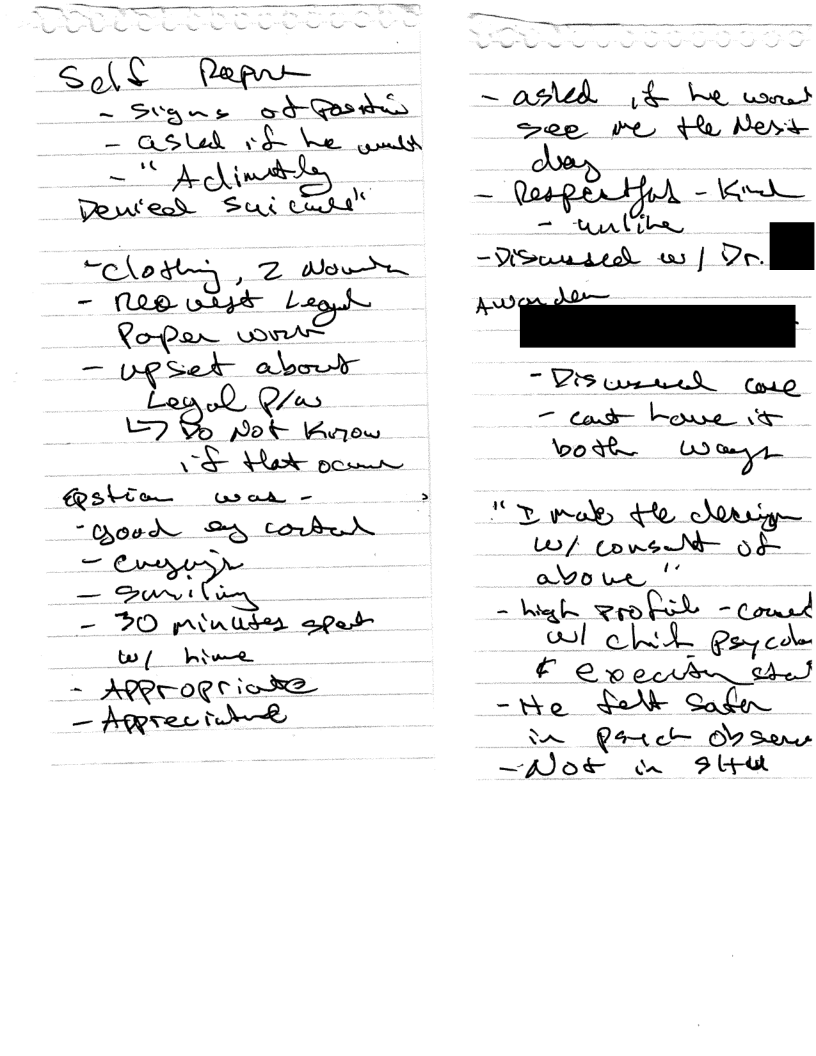 Self Report
- signs of
- asked if he would
- "Adimatly
Denied Suicide"
- clothing, 2
- request Legal
Paper work
- upset about
Legal P/W
↳ Do Not Know
if that occur
Epstien was -
- good ey contact
- engaging
- smiling
- 30 minutes spent
w/ hime
- Appropriate
- Appreciative
- asked if he would
see me the Next
day
- Respectful - Kind
- unlike
- Discussed w/ Dr.
AWarden
- Discussed case
- cant have it
both ways
"I make the decision
w/ consult of
above"
- high profile -
w/ chief psycolo
& executiv staf
- He felt safer
in psych observ
- Not in SHU